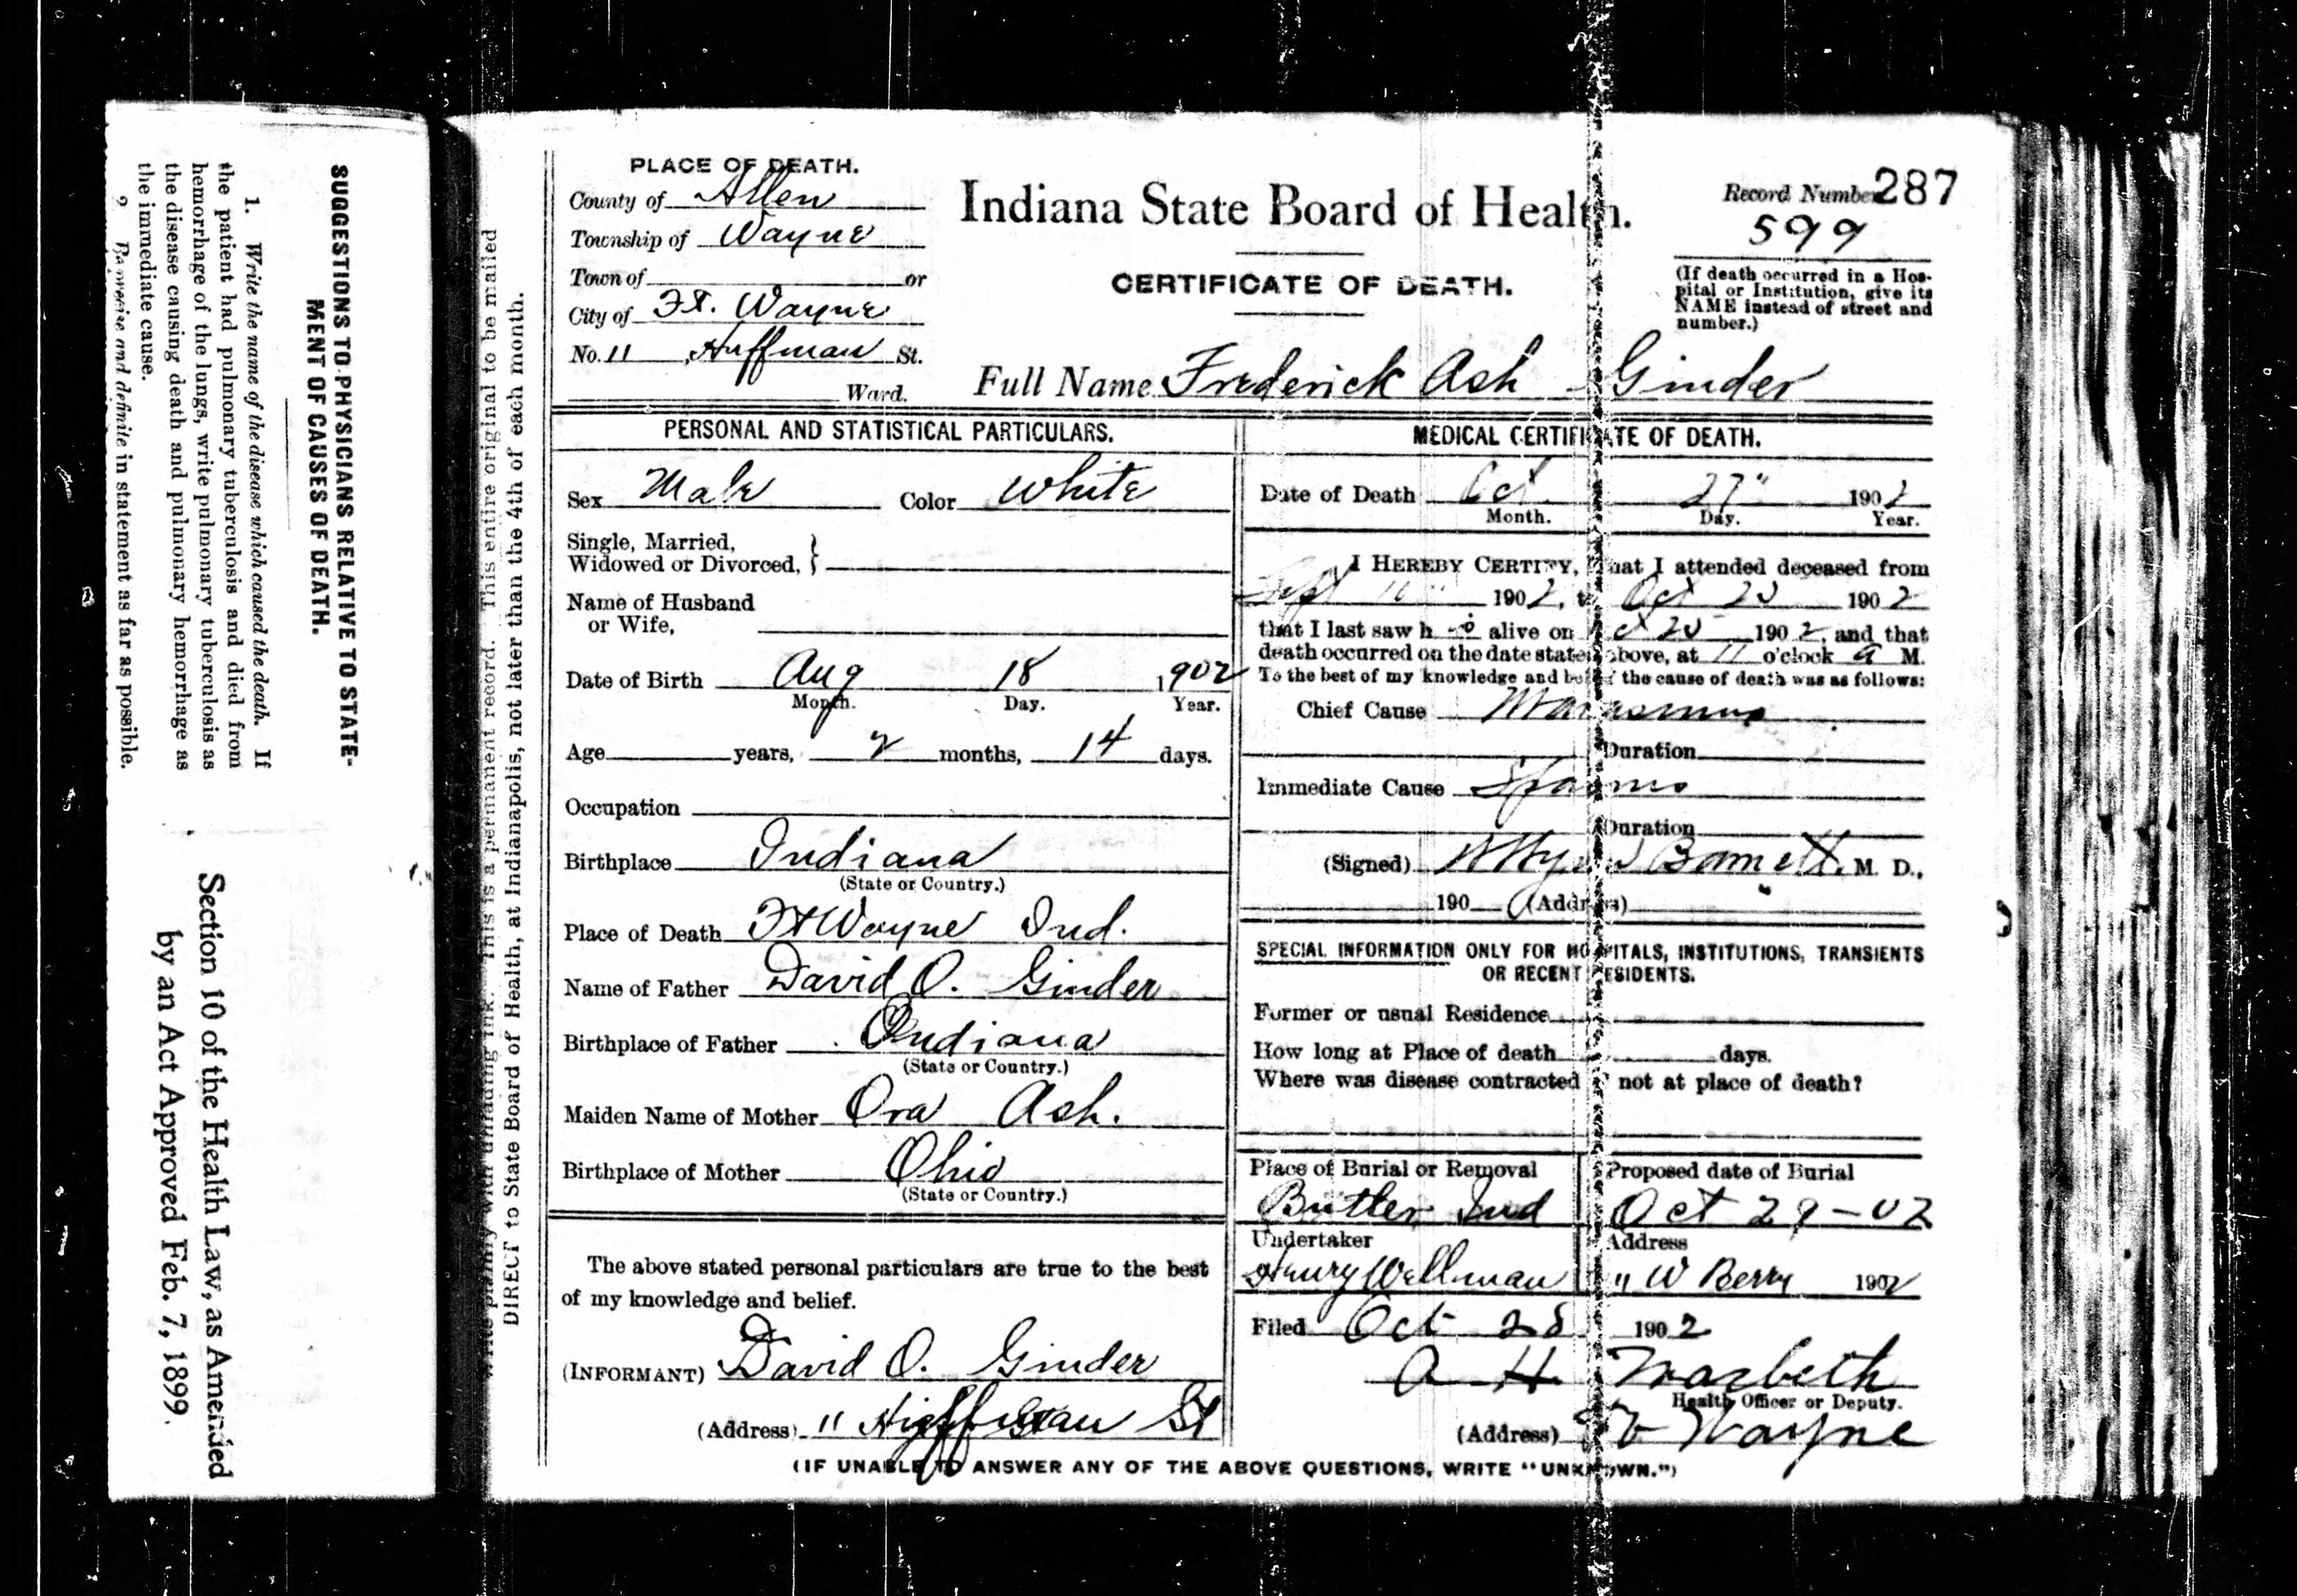 SUGGESTIONS TO PHYSICIANS RELATIVE TO STATE-
MENT OF CAUSES OF DEATH.
1. Write the name of the disease which caused the death. If
the patient had pulmonary tuberculosis and died from
hemorrhage of the lungs, write pulmonary tuberculosis as
the disease causing death and pulmonary hemorrhage as
the immediate cause.
2 Be precise and definite in statement as far as possible.
Section 10 of the Health Law, as Amended
by an Act Approved Feb. 7, 1899.
Write plainly with unfading ink. This is a permanent record. This entire original to be mailed
DIRECT to State Board of Health, at Indianapolis, not later than the 4th of each month.
PLACE OF DEATH.
County of Allen
Township of Wayne
Town of or
City of Ft. Wayne
No. 11 Huffman St.
Ward.
Indiana State Board of Health.
CERTIFICATE OF DEATH.
Record Number 287
599
(If death occurred in a Hos-
pital or Institution, give its
NAME instead of street and
number.)
Full Name Frederick Ash Ginder
PERSONAL AND STATISTICAL PARTICULARS.
Sex Male Color White
Single, Married,
Widowed or Divorced,
Name of Husband
or Wife,
Date of Birth Aug 18 1902
Month. Day. Year.
Age years, 2 months, 14 days.
Occupation
Birthplace Indiana
(State or Country.)
Place of Death Ft Wayne Ind.
Name of Father David O. Ginder
Birthplace of Father Indiana
(State or Country.)
Maiden Name of Mother Ora Ash.
Birthplace of Mother Ohio
(State or Country.)
The above stated personal particulars are true to the best
of my knowledge and belief.
(INFORMANT) David O. Ginder
(Address) 11 Huffman St
MEDICAL CERTIFICATE OF DEATH.
Date of Death Oct 27" 1902
Month. Day. Year.
I HEREBY CERTIFY, that I attended deceased from
Sept 1902, to Oct 25 1902
that I last saw h alive on Oct 25 1902, and that
death occurred on the date stated above, at 11 o'clock a M.
To the best of my knowledge and belief the cause of death was as follows:
Chief Cause Marasmus
Duration
Immediate Cause Spasms
Duration
(Signed) Barnett. M. D.,
190 (Address)
SPECIAL INFORMATION ONLY FOR HOSPITALS, INSTITUTIONS, TRANSIENTS
OR RECENT RESIDENTS.
Former or usual Residence
How long at Place of death days.
Where was disease contracted if not at place of death?
Place of Burial or Removal
Butler Ind
Proposed date of Burial
Oct 29-02
Undertaker
Henry Wellman
Address
11 W Berry 1902
Filed Oct 28 1902
A H Macbeth
Health Officer or Deputy.
(Address) Ft Wayne
(IF UNABLE TO ANSWER ANY OF THE ABOVE QUESTIONS, WRITE "UNKNOWN.")